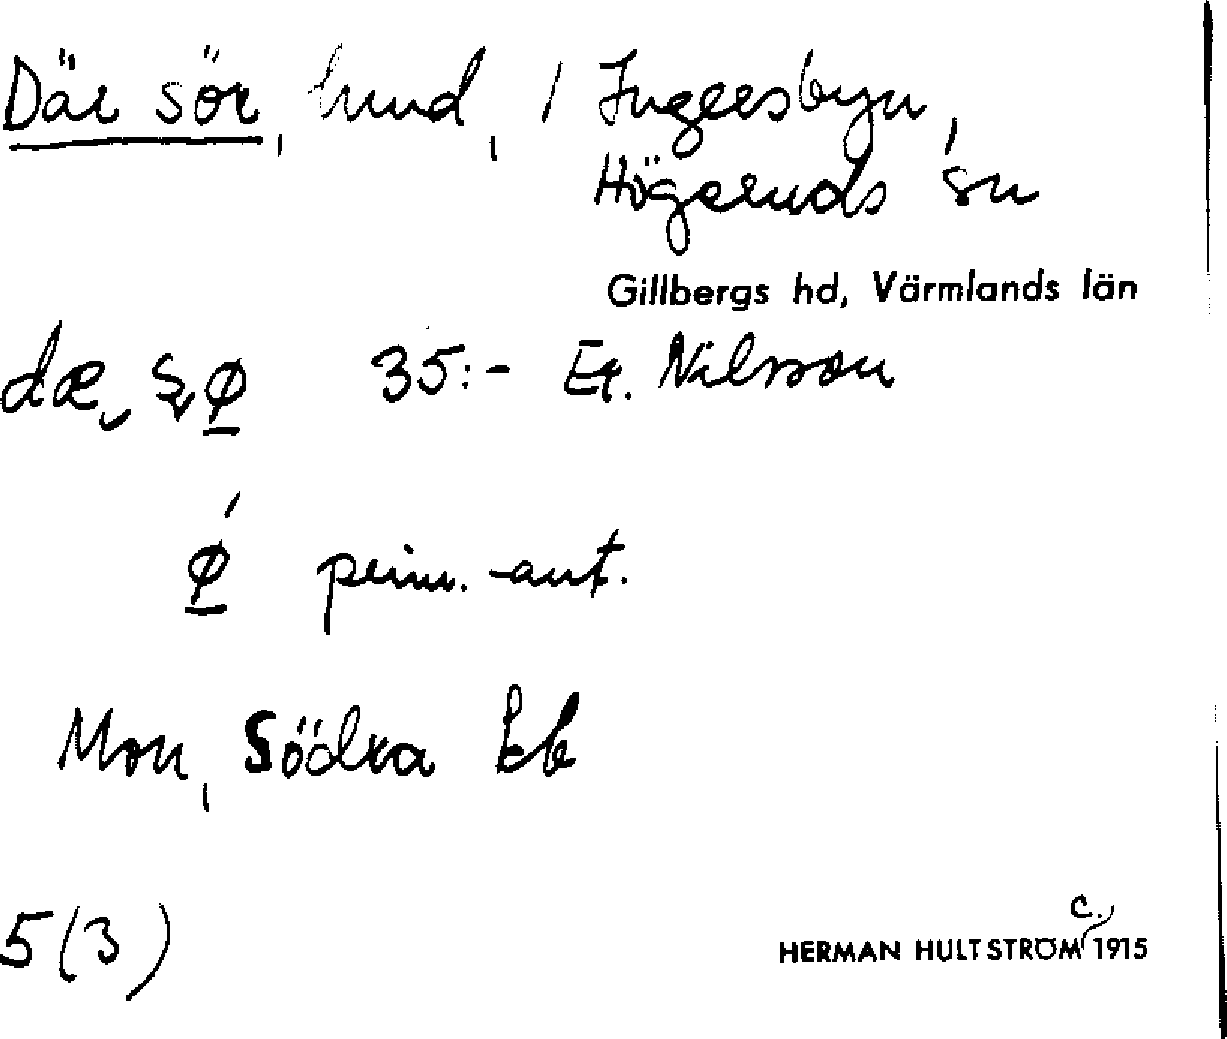 Där sör, hund, 1 Ingersbyn,
Högeruds sn
Gillbergs hd, Värmlands län
35:- Er. Nilsson
prim. -ant.
Mon, Södra
5(3)
HERMAN HULTSTRÖM c., 1915